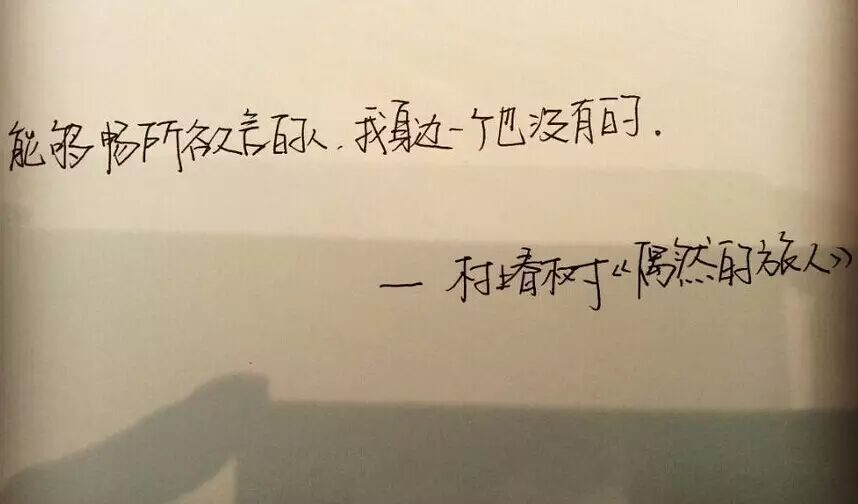 能够畅所欲言的人.我身边一个也没有的.
— 村上春树《偶然的旅人》